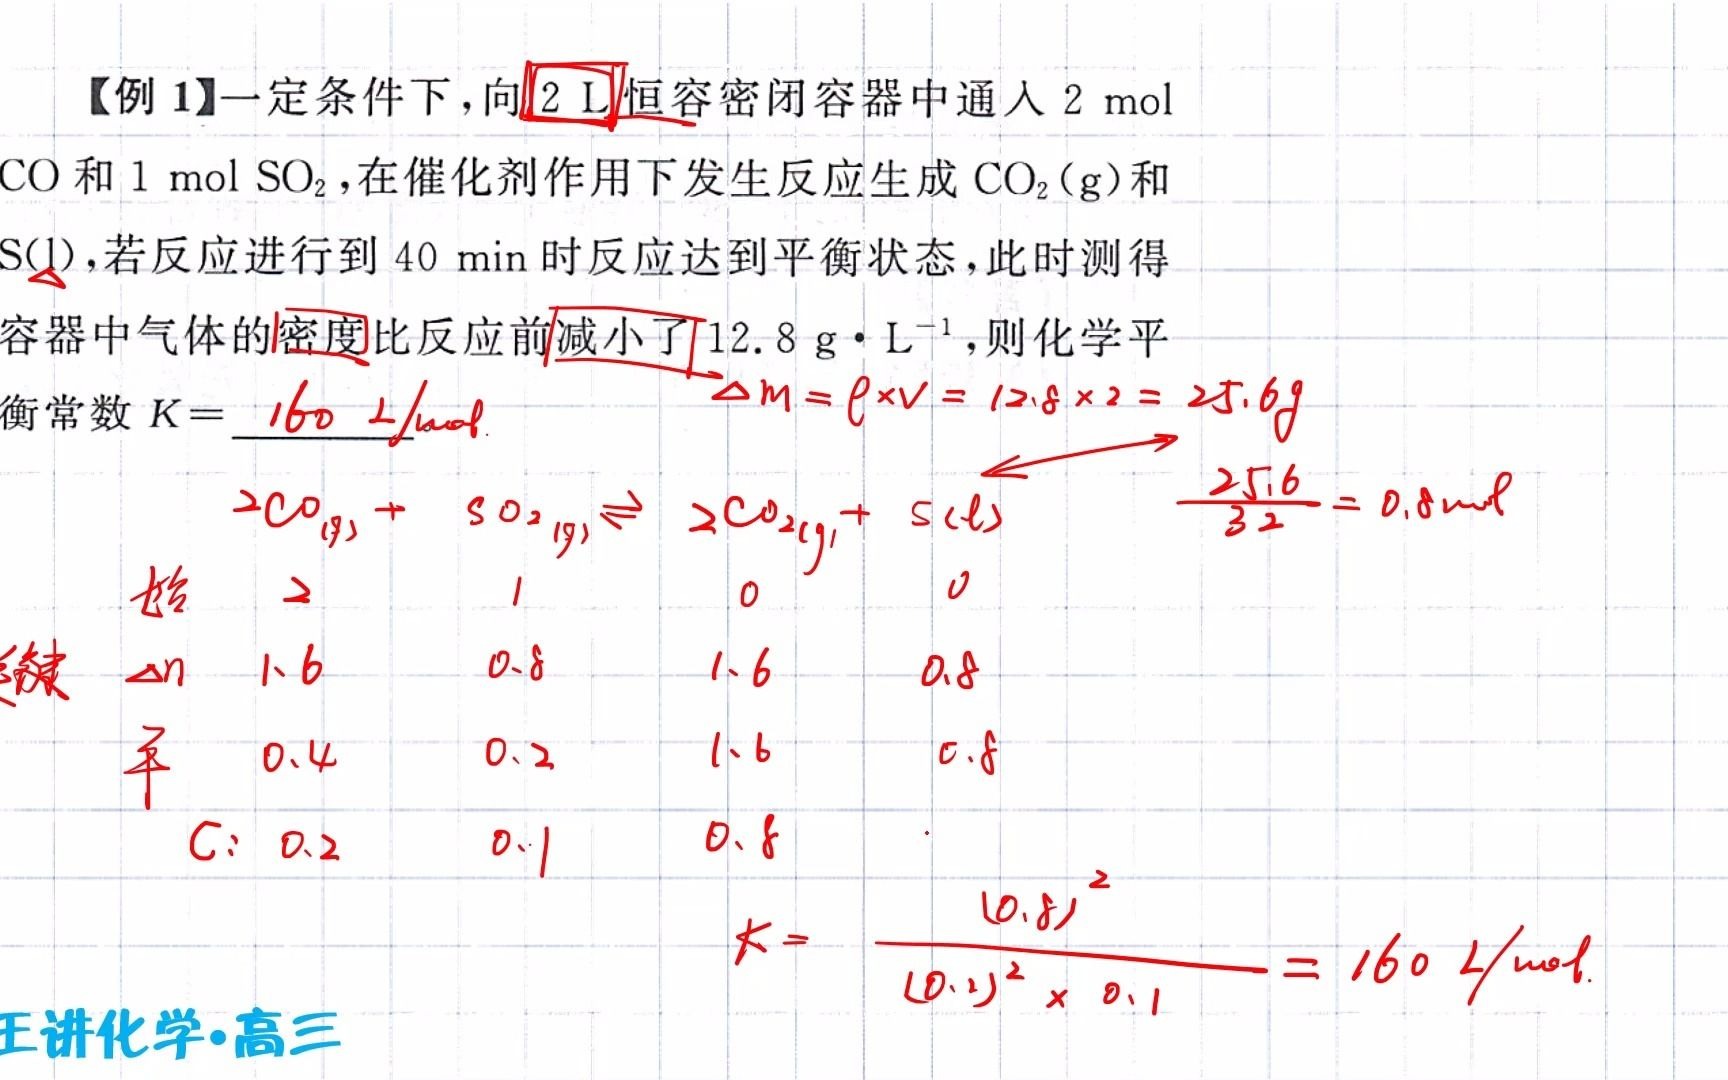 【例 1】一定条件下，向 2 L 恒容密闭容器中通入 2 mol
CO 和 1 mol SO₂，在催化剂作用下发生反应生成 CO₂(g)和
S(l)，若反应进行到 40 min 时反应达到平衡状态，此时测得
容器中气体的密度比反应前减小了 12.8 g·L⁻¹，则化学平
衡常数 K= 160 L/mol.
Δm = ρ×V = 12.8×2 = 25.6g
25.6/32 = 0.8mol
2CO(g) + SO₂(g) ⇌ 2CO₂(g) + S(l)
始 2 1 0 0
Δn 1.6 0.8 1.6 0.8
平 0.4 0.2 1.6 0.8
C: 0.2 0.1 0.8
K = (0.8)² / (0.2)² × 0.1 = 160 L/mol.
王讲化学·高三